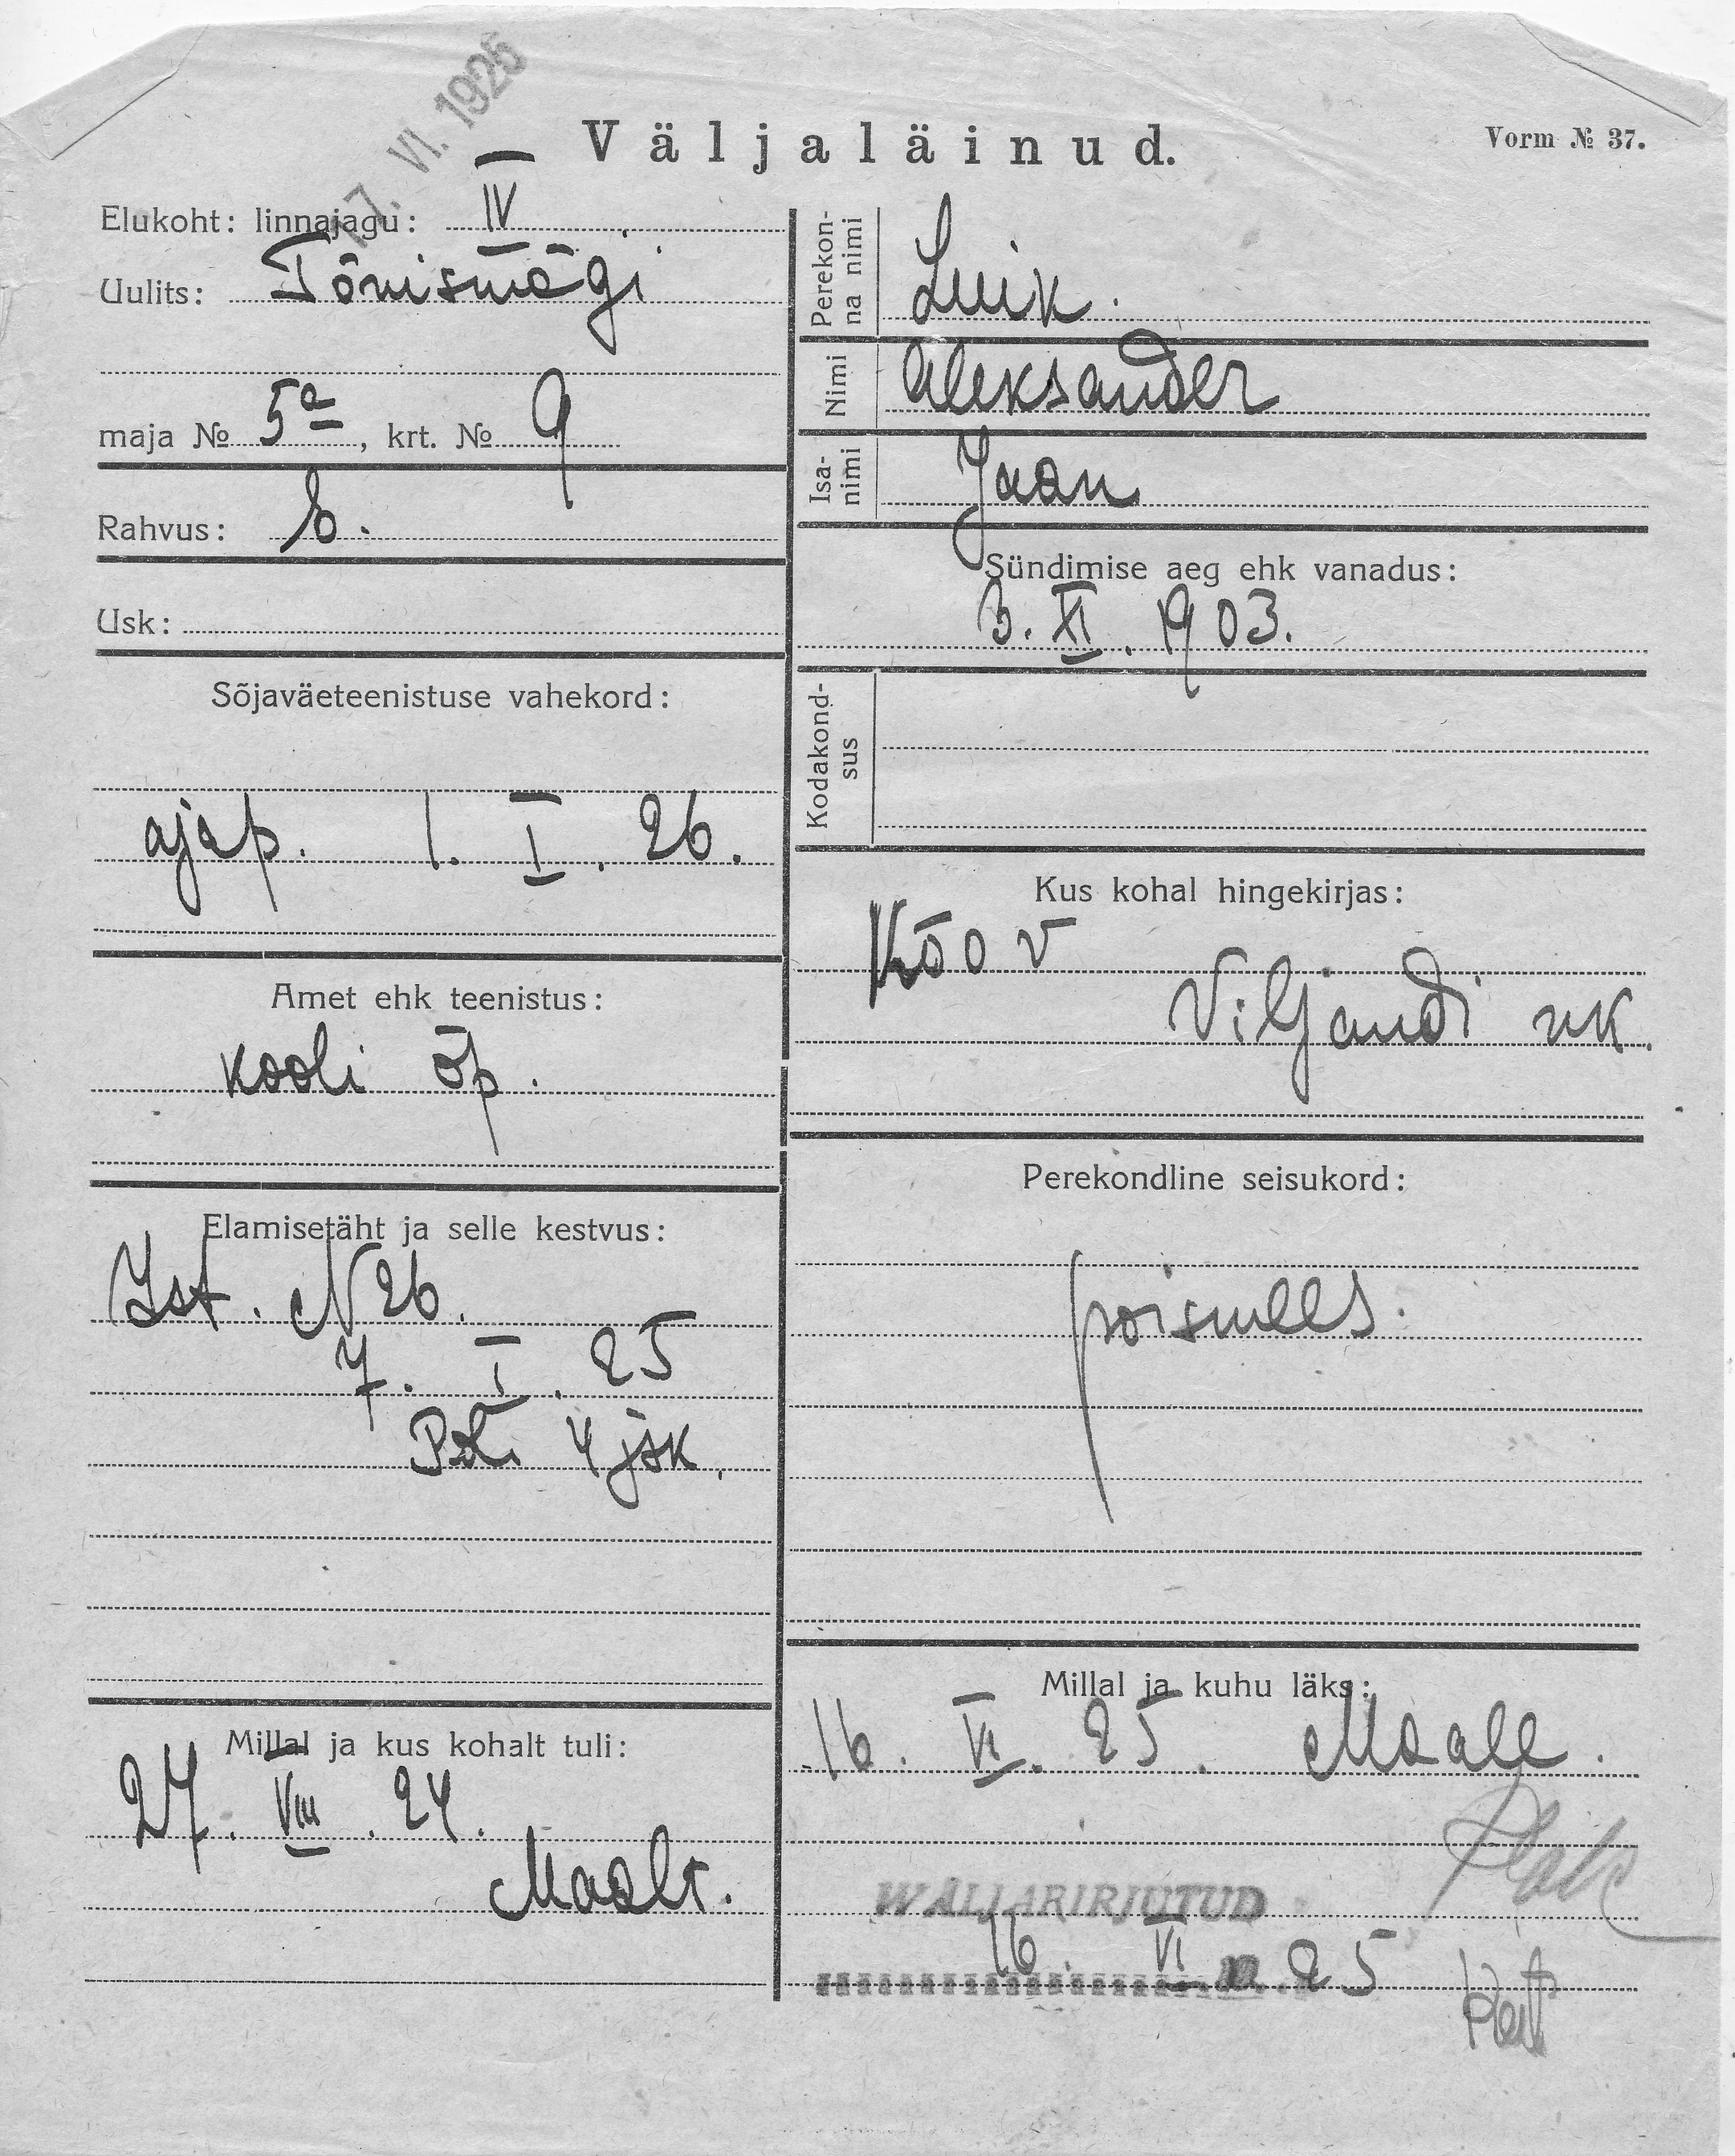 17. VI. 1925
Väljaläinud.
Vorm № 37.
Elukoht: linnajagu: IV
Uulits: Tõnismägi
maja № 5a, krt. № 9
Rahvus: E.
Usk:
Sõjaväeteenistuse vahekord:
ajap. 1. I. 26.
Amet ehk teenistus:
kooli õp.
Elamisetäht ja selle kestvus:
Ist. N 26.
7. I. 25
4 jsk.
Millal ja kus kohalt tuli:
27. VIII. 24.
Maalt.
Perekon-
na nimi
Luik.
Nimi
Aleksander
Isa-
nimi
Jaan
Sündimise aeg ehk vanadus:
3. XI. 1903.
Kodakond-
sus
Kus kohal hingekirjas:
Kõo v
Viljandi mk.
Perekondline seisukord:
poismees.
Millal ja kuhu läks:
16. VI. 25. Maale.
WÄLJAKIRJUTUD
16. VI 25